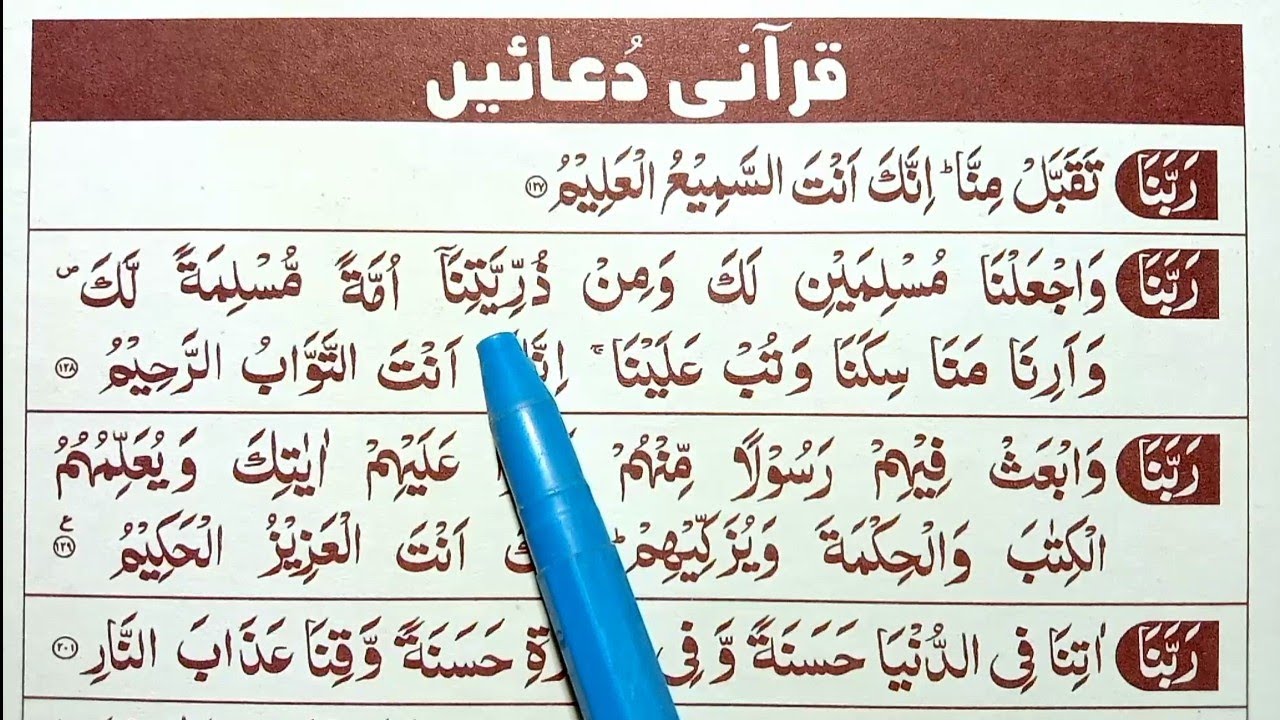 قرآنی دُعائیں
رَبَّنَا تَقَبَّلْ مِنَّا ؕ اِنَّكَ اَنْتَ السَّمِيْعُ الْعَلِيْمُ ۝۱۲۷
رَبَّنَا وَاجْعَلْنَا مُسْلِمَيْنِ لَكَ وَمِنْ ذُرِّيَّتِنَاۤ اُمَّةً مُّسْلِمَةً لَّكَ ۪
وَاَرِنَا مَنَا سِكَنَا وَتُبْ عَلَيْنَا ۚ اَنْتَ التَّوَّابُ الرَّحِيْمُ ۝۱۲۸
رَبَّنَا وَابْعَثْ فِيْهِمْ رَسُوْلًا مِّنْهُمْ عَلَيْهِمْ اٰيٰتِكَ وَيُعَلِّمُهُمُ
الْكِتٰبَ وَالْحِكْمَةَ وَيُزَكِّيْهِمْ ؕ اَنْتَ الْعَزِيْزُ الْحَكِيْمُ ۝۱۲۹ ع
رَبَّنَا اٰتِنَا فِى الدُّنْيَا حَسَنَةً وَّفِى حَسَنَةً وَّقِنَا عَذَابَ النَّارِ ۝۲۰۱